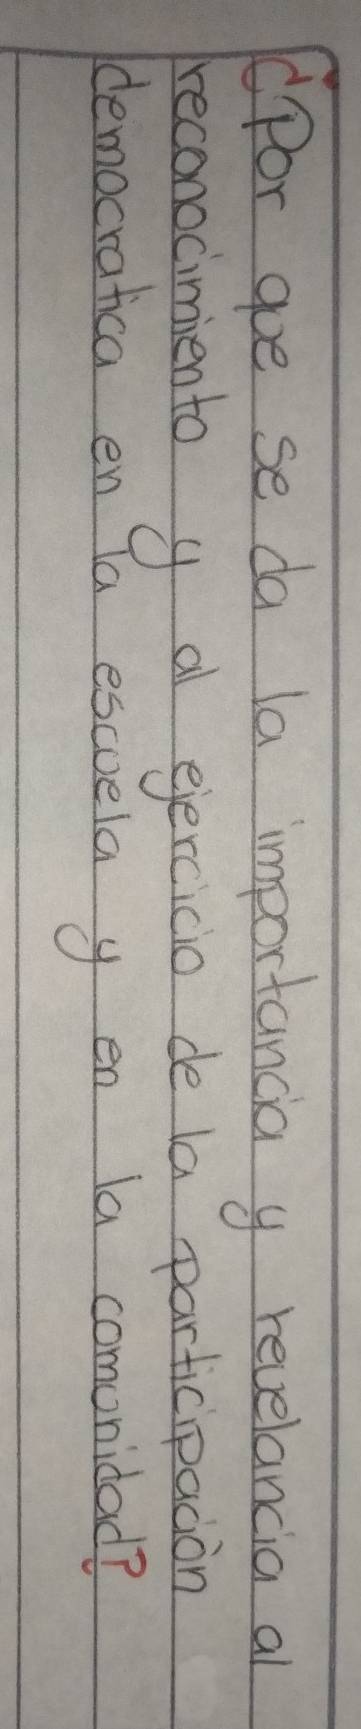 ¿Por que se da la importancia y revelancia al
reconocimiento y al ejercicio de la participación
democratica en la escuela y en la comunidad?